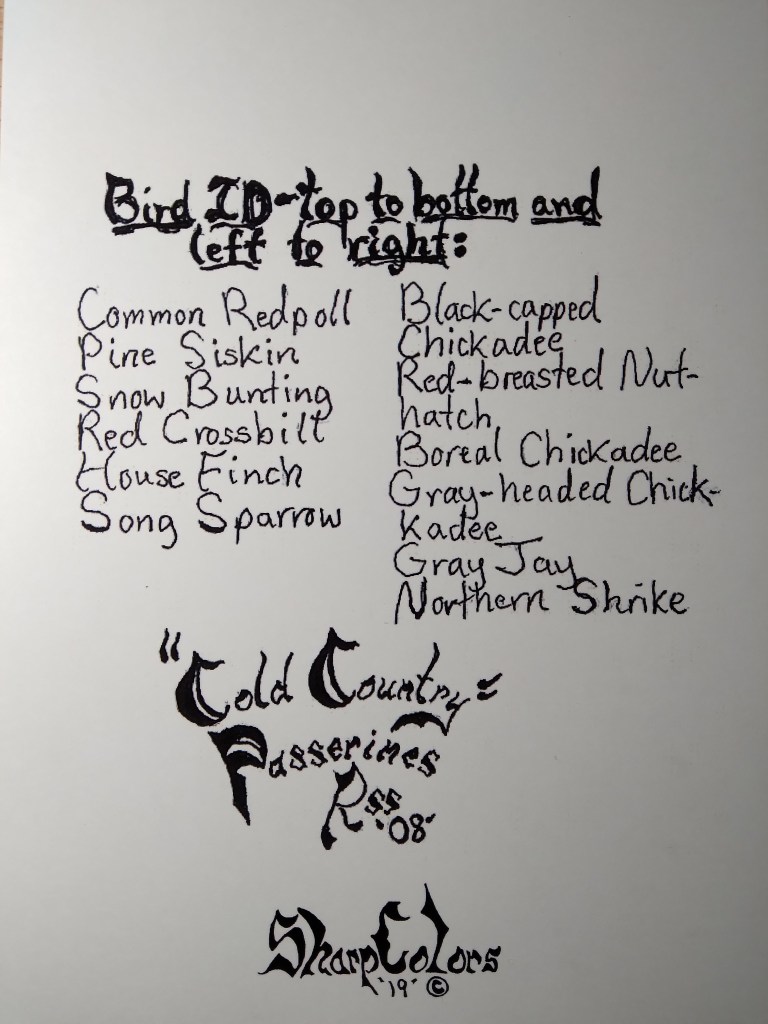 Bird ID-top to bottom and
left to right:
Common Redpoll
Pine Siskin
Snow Bunting
Red Crossbill
House Finch
Song Sparrow
Black-capped
Chickadee
Red-breasted Nut-
hatch
Boreal Chickadee
Gray-headed Chick-
kadee
Gray Jay
Northern Shrike
"Cold Country=
Passerines
Rss
'08'
SharpColors
'19' ©